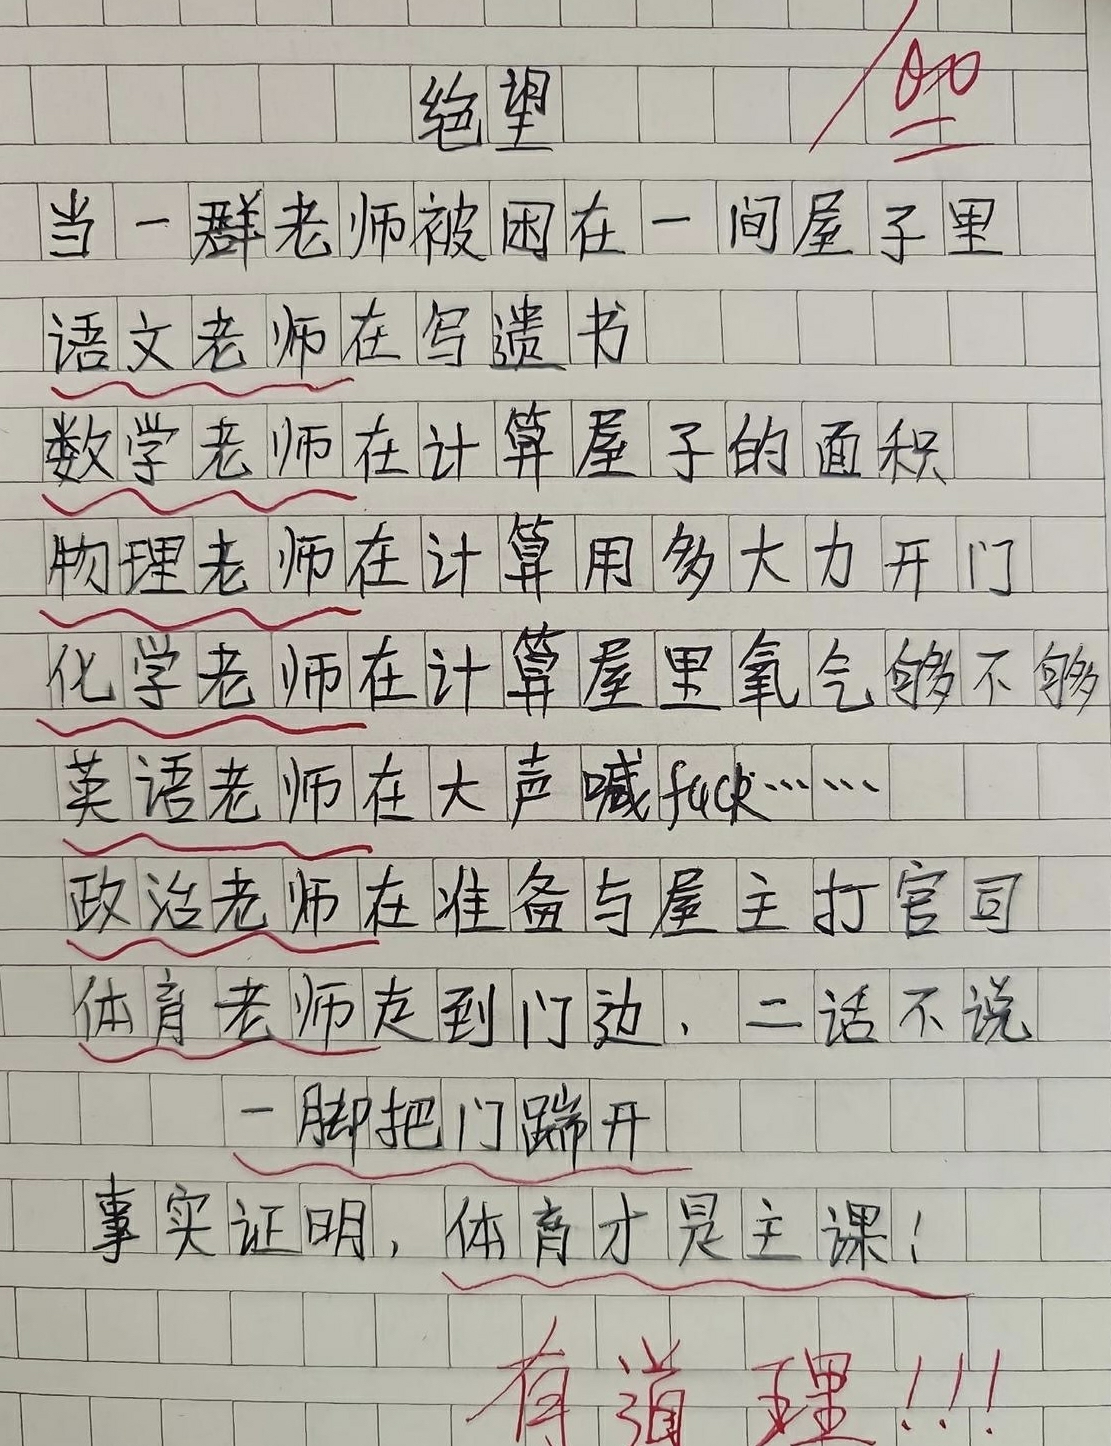 100
绝望
当一群老师被困在一间屋子里
语文老师在写遗书
数学老师在计算屋子的面积
物理老师在计算用多大力开门
化学老师在计算屋里氧气够不够
英语老师在大声喊fuck……
政治老师在准备与屋主打官司
体育老师走到门边，二话不说
一脚把门踹开
事实证明，体育才是主课！
有道理!!!